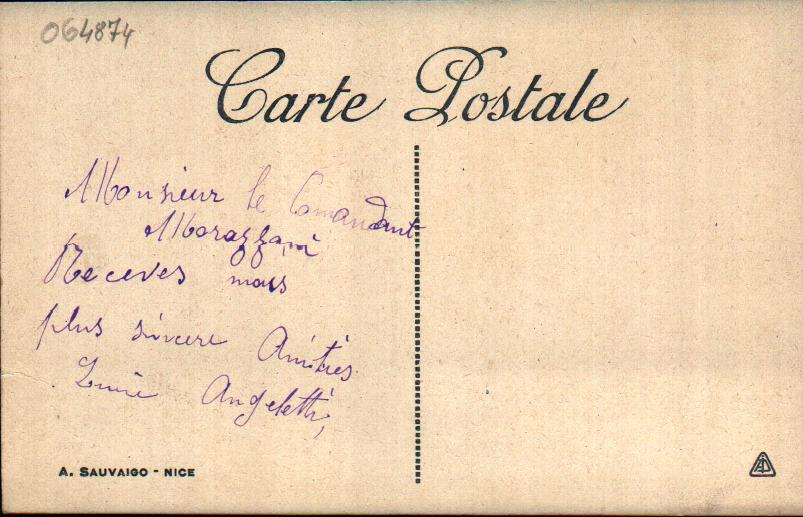 064874
Carte Postale
Monsieur le Comandant
Morazzani
Receves mais
plus sincere Amitiés
Angeletti,
A. SAUVAIGO - NICE